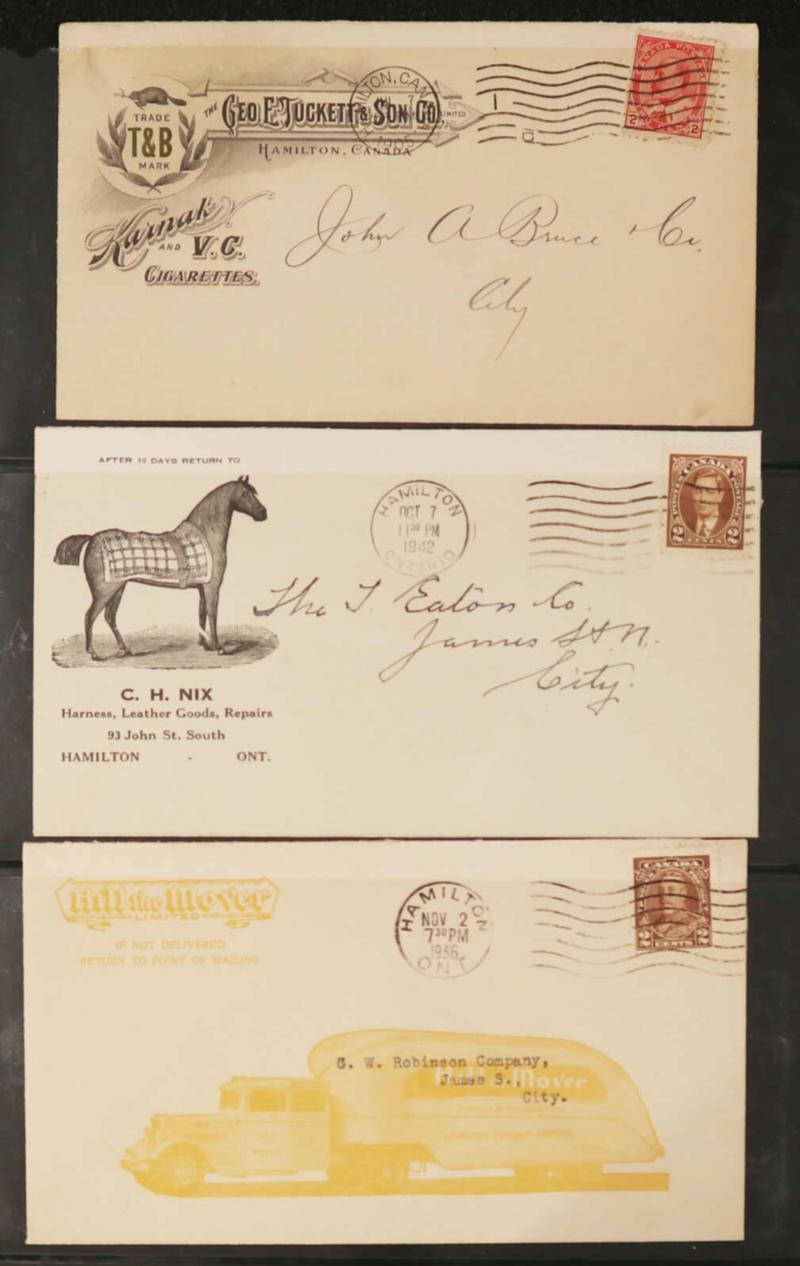 THE GEO. E. TUCKETT & SON CO. LIMITED
HAMILTON, CANADA
TRADE
T&B
MARK
Karnak
AND V.C.
CIGARETTES.
HAMILTON, CAN
7
1905
CANADA POSTAGE
2 2
John A Bruce & Co.
City
AFTER 10 DAYS RETURN TO
C. H. NIX
Harness, Leather Goods, Repairs
93 John St. South
HAMILTON - ONT.
HAMILTON
OCT 7
11 30 PM
1942
ONTARIO
POSTES CANADA POSTAGE
2 CENTS 2
The T. Eaton Co.
James St N.
City.
Hill the Mover
LIMITED
IF NOT DELIVERED
RETURN TO POINT OF MAILING
HAMILTON
NOV 2
7 30 PM
1936
ONT
CANADA
2 CENTS 2
G. W. Robinson Company,
James S.,
City.
Hill the Mover